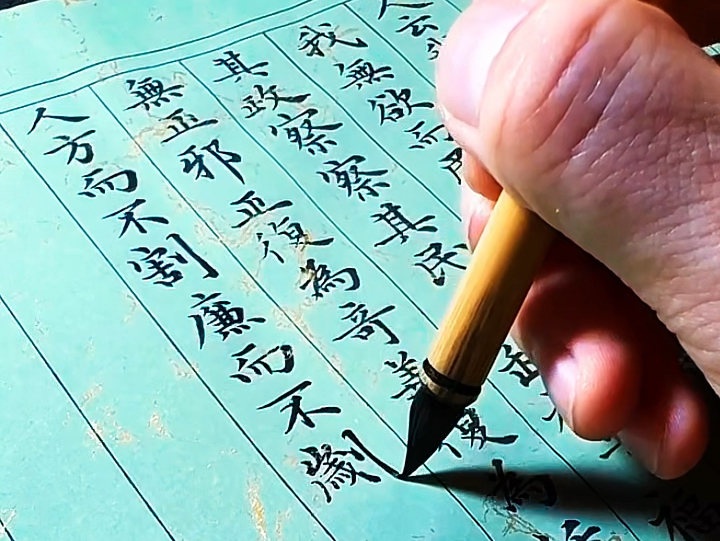 人云
我無欲而民
其政察察其民
無正邪正復為奇善復為
人方而不割廉而不劌